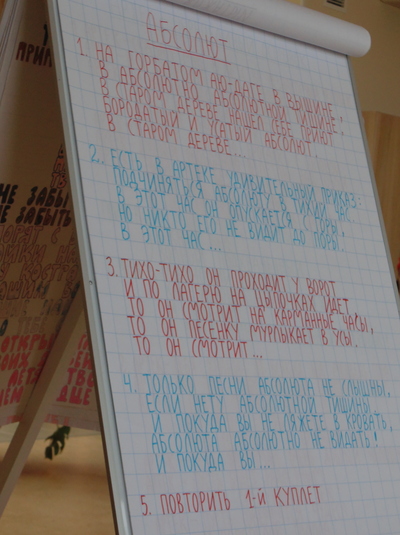 АБСОЛЮТ
1. НА ГОРБАТОМ АЮ-ДАГЕ, В ВЫШИНЕ,
В АБСОЛЮТНО АБСОЛЮТНОЙ ТИШИНЕ
В СТАРОМ ДЕРЕВЕ НАШЁЛ СЕБЕ ПРИЮТ
БОРОДАТЫЙ И УСАТЫЙ АБСОЛЮТ.
В СТАРОМ ДЕРЕВЕ...
2. ЕСТЬ В АРТЕКЕ УДИВИТЕЛЬНЫЙ ПРИКАЗ:
ПОДЧИНЯТЬСЯ АБСОЛЮТУ В ТИХИЙ ЧАС
В ЭТОТ ЧАС ОН ОПУСКАЕТСЯ С ГОРЫ,
НО НИКТО ЕГО НЕ ВИДИТ ДО ПОРЫ.
В ЭТОТ ЧАС...
3. ТИХО-ТИХО ОН ПРОХОДИТ У ВОРОТ
И ПО ЛАГЕРЮ НА ЦЫПОЧКАХ ИДЁТ
ТО ОН СМОТРИТ НА КАРМАННЫЕ ЧАСЫ,
ТО ОН ПЕСЕНКУ МУРЛЫКАЕТ В УСЫ.
ТО ОН СМОТРИТ...
4. ТОЛЬКО ПЕСНИ АБСОЛЮТА НЕ СЛЫШНЫ,
ЕСЛИ НЕТУ АБСОЛЮТНОЙ ТИШИНЫ
И ПОКУДА ВЫ НЕ ЛЯЖЕТЕ В КРОВАТЬ,
АБСОЛЮТА АБСОЛЮТНО НЕ ВИДАТЬ!
И ПОКУДА ВЫ...
5. ПОВТОРИТЬ 1-Й КУПЛЕТ
НЕ ЗАБЫ
НЕ ЗАБЫТЬ